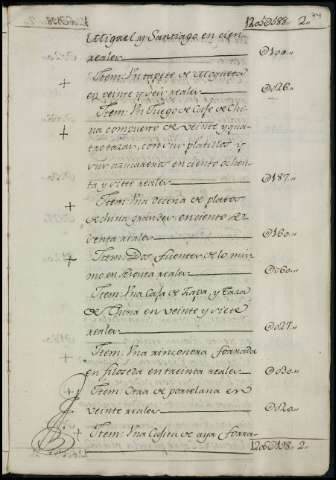 Miguel, y Santiago, en cien
reales @100..
Item: Un tapete de Mogueta
en veinte y seis reales @026..
Item: Un Juego de Cafe de Chi
na compuesto de veinte y qua
tro tazas, con sus platillos y
sus azucareros en ciento ochen
ta y siete reales @187..
Item: Una docena de platos
de china grandes en ciento se
senta reales @160..
Item: Dos fuentes de lo mis
mo en sesenta reales @060..
Item: Una Caja de tapa, y taza
de China en veinte y siete
reales @027..
Item: Una rinconera forrada
en filoseda en treinta reales @030..
Item: Otra de porcelana en
veinte reales @020..
Item: Una Cajita de aya forra